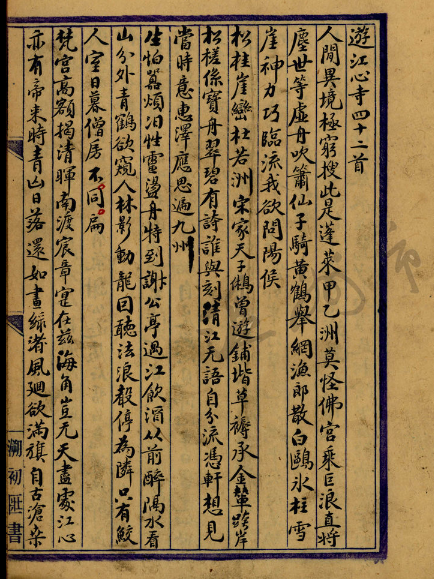 遊江心寺四十二首
人間異境極窮搜此是蓬萊甲乙洲莫怪佛宮乘巨浪直將
塵世等虛舟吹簫仙子騎黃鶴舉網漁郎散白鷗氷柱雪
崖神力巧臨流我欲問陽侯
松柱崖巒杜若洲宋家天子鷁曾遊鋪堦草褥承金輦跨岸
松槎係寶舟翠碧有詩誰與刻清江无語自分流憑軒想見
當時意惠澤應思遍九州
生怕囂煩汨性靈盪舟特到謝公亭過江飲酒從前醉隔水看
山分外青鶴欲窺人林影動龍回聽法浪聲停為隣只有鮫
人室日暮僧房不同扃
梵宮高額揭清暉南渡宸章寔在兹海角豈无天盡處江心
亦有帝來時青山日落還如畫綠渚風廻欲滿旗自古滄桑
溯初匪書